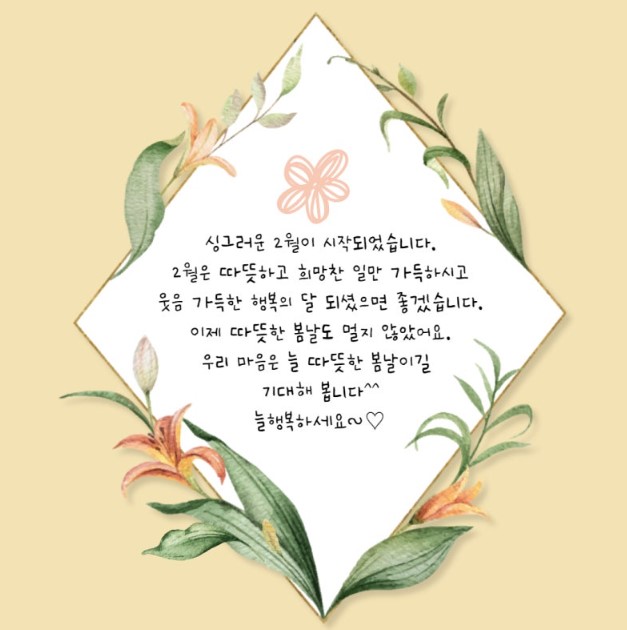 싱그러운 2월이 시작되었습니다.
2월은 따뜻하고 희망찬 일만 가득하시고
웃음 가득한 행복의 달 되셨으면 좋겠습니다.
이제 따뜻한 봄날도 멀지 않았어요.
우리 마음은 늘 따뜻한 봄날이길
기대해 봅니다^^
늘행복하세요~♡